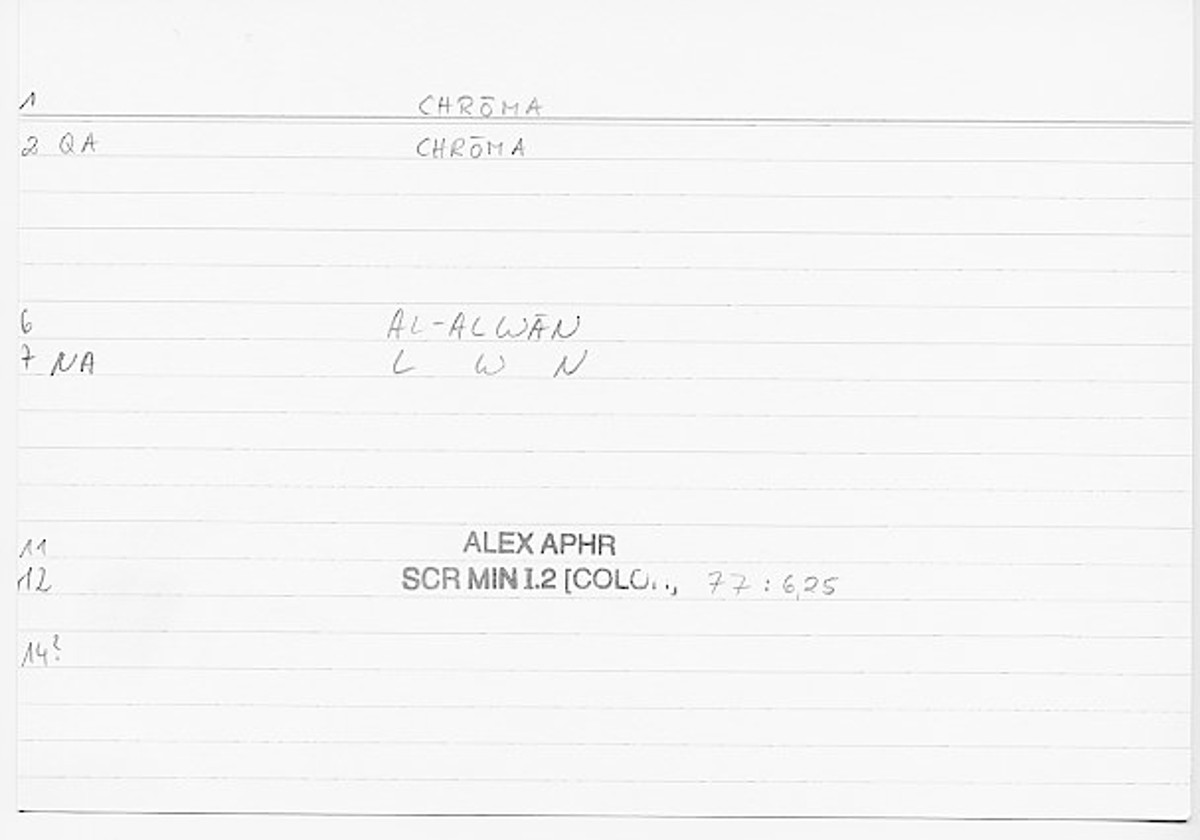 1 CHRŌMA
2 QA CHRŌMA
6 AL-ALWĀN
7 NA L W N
11 ALEX APHR
12 SCR MIN I.2 [COLO.., 77:6,25
14?